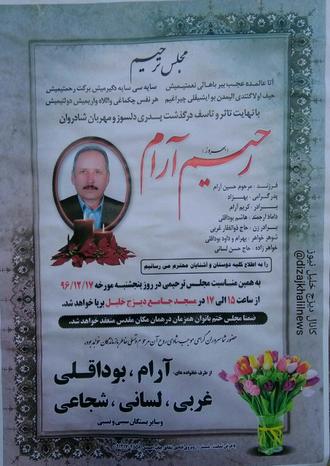 مجلس ترحیم
آتا عالمده عجب بیر باهالی نعمتیمیش
صایه سی سایه دگیرمیش برکت رحمتیمیش
حیف اولا گتدی الیمدن بو ایشیقلی چیراغیم
هر نفس چکماغی واللاه واریمیش دولتیمیش
با نهایت تاثر و تاسف درگذشت پدری دلسوز و مهربان شادروان
رحیم آرام
فرزند: مرحوم حسین آرام
پدر گرامی: بهزاد
برادر: کریم آرام
داماد ارجمند: هاشم بوداقلی
برادر زن: حاج قوالغفار غربی
شوهر خواهر: بهرام و داود بوداقلی
خواهر زاده: حاج حسن لسانی
را به اطلاع کلیه دوستان و آشنایان محترم می رسانیم
به همین مناسبت مجلس ترحیمی در روز پنجشنبه مورخه ۹۶/۱۲/۱۷
از ساعت ۱۵ الی ۱۷ در مسجد جامع دیزج خلیل برپا خواهد شد.
ضمنا مجلس ختم بانوان همزمان در همان مکان مقدس منعقد خواهد شد.
حضور شما سروران گرامی موجب شادی روح آن مرحوم و تسلی خاطر بازماندگان خواهد بود
از طرف خانواده های: آرام ، بوداقلی
غربی ، لسانی ، شجاعی
و سایر بستگان سببی و نسبی
کانال دیزج خلیل نیوز
@dizajkhalilnews